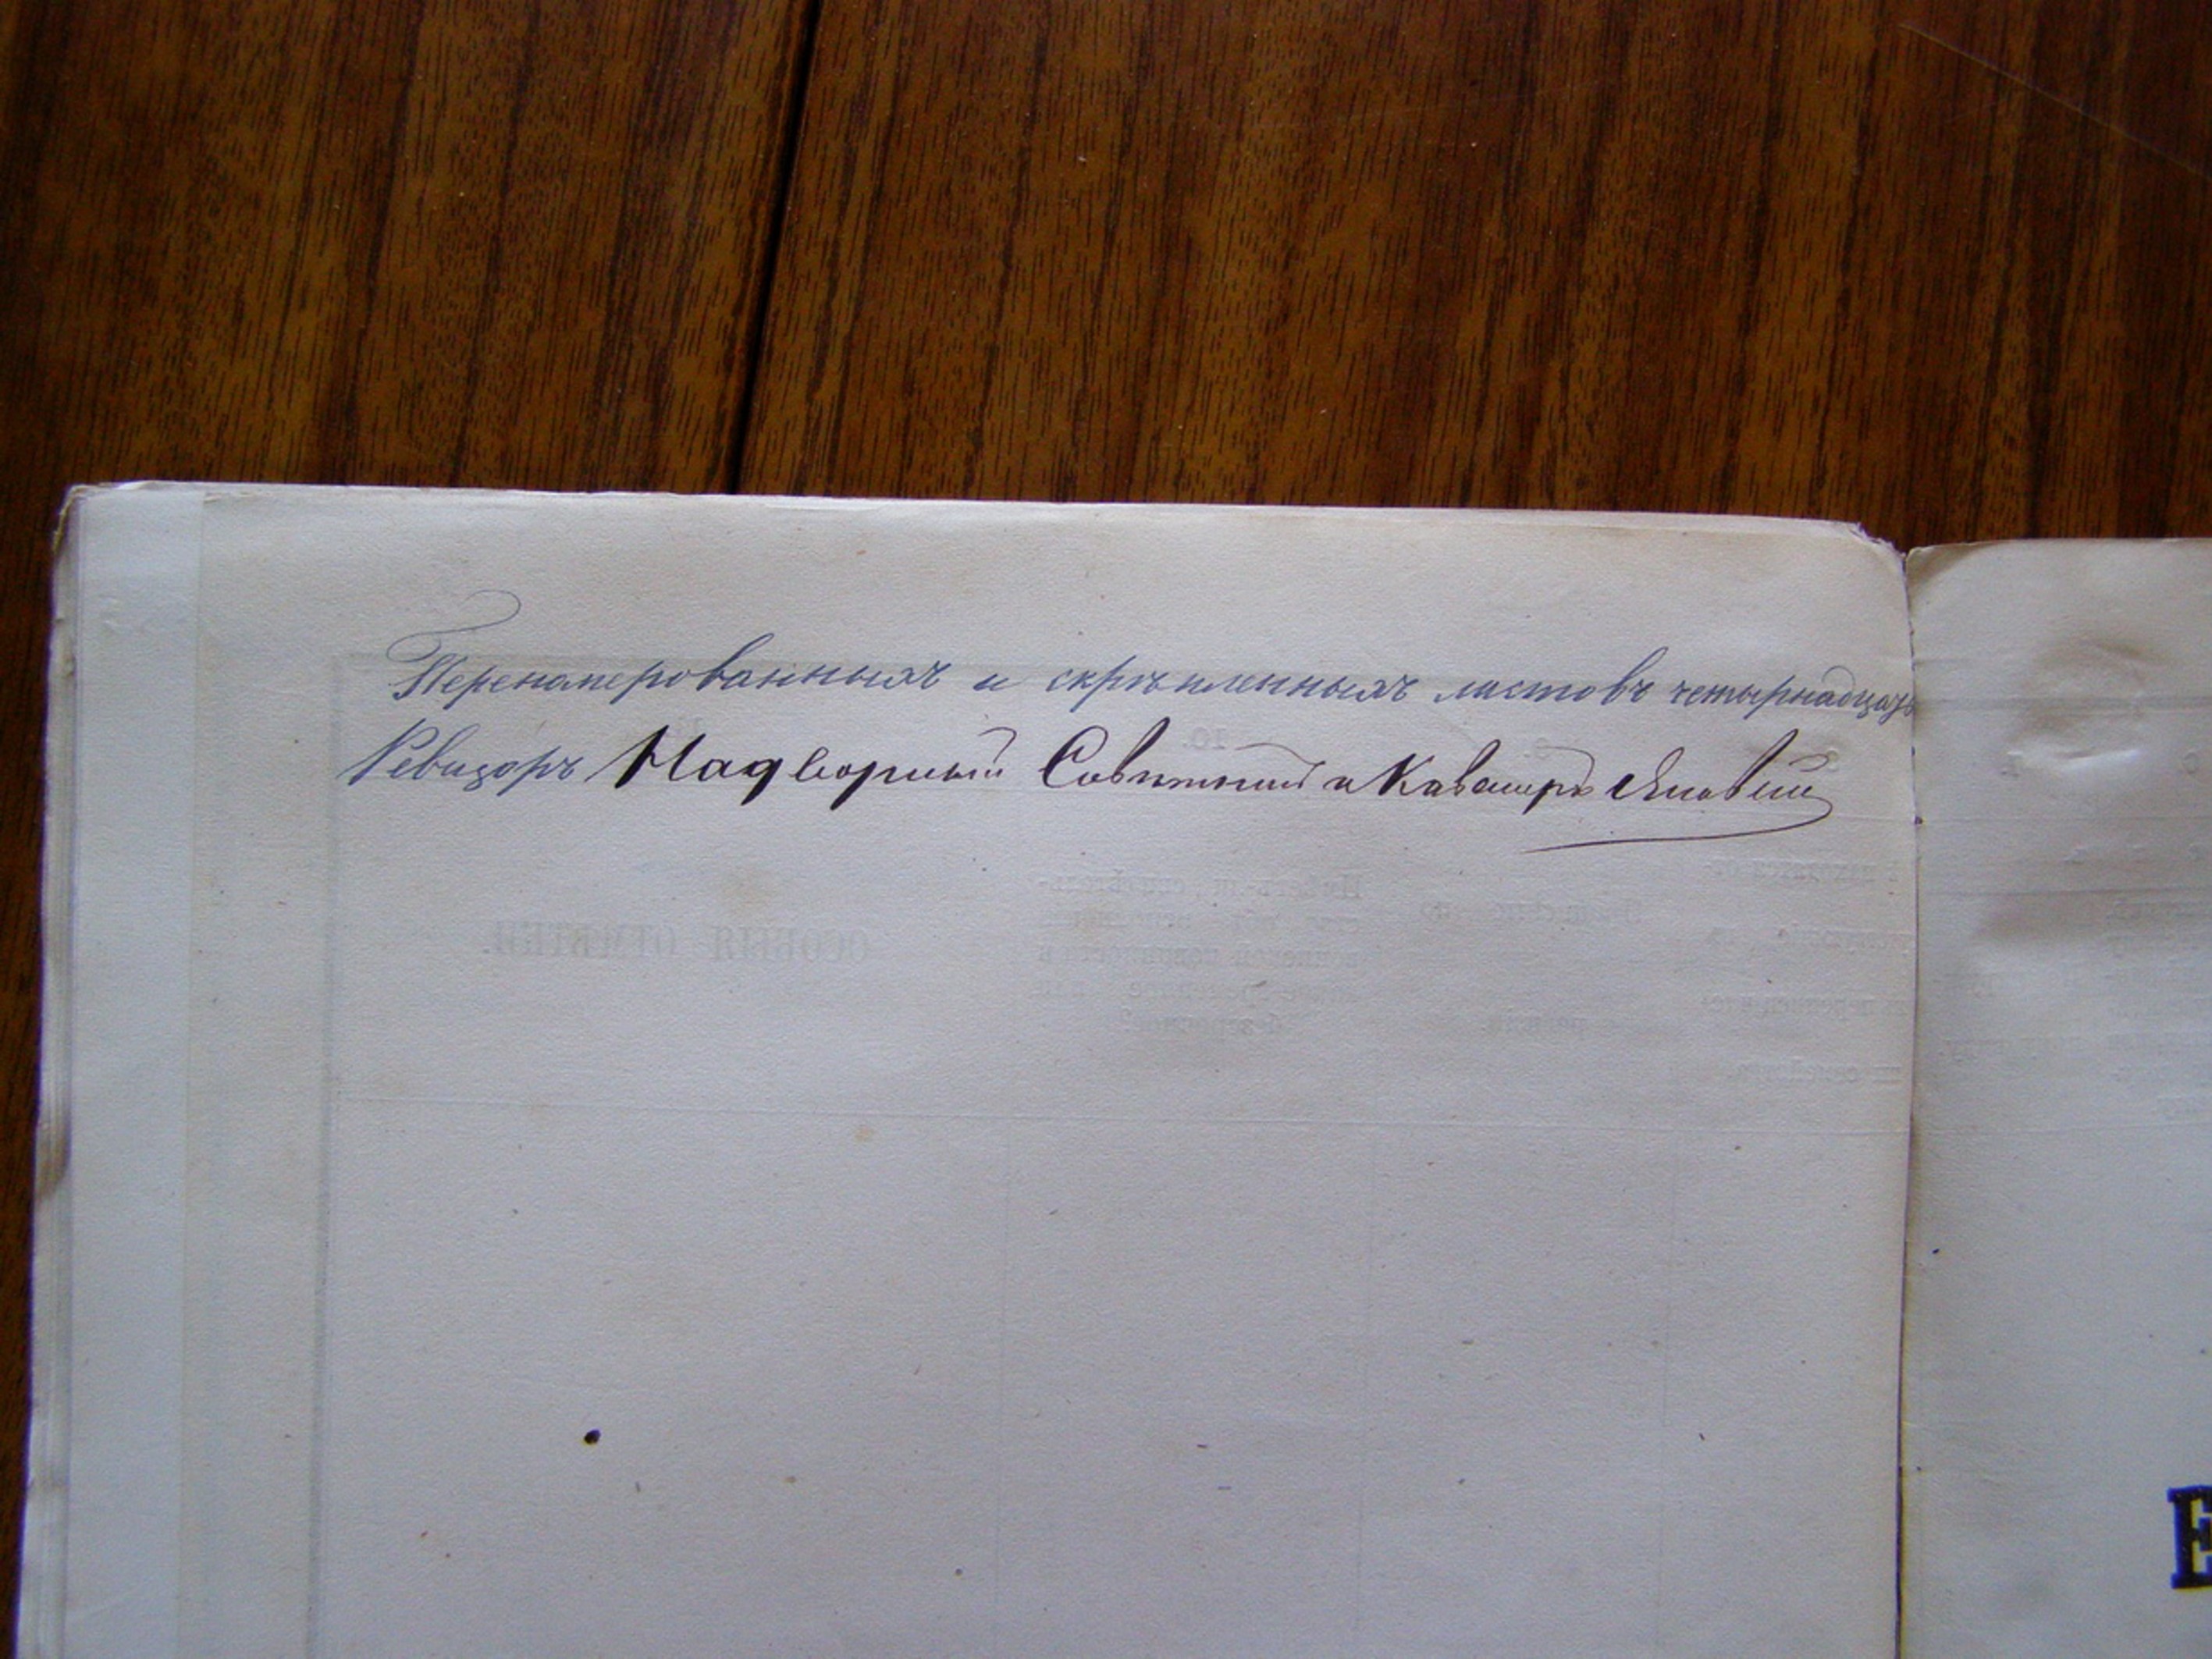 Перенамерованныхъ и скрѣпленныхъ листовъ четырнадцать
Ревизоръ Надворный Совѣтникъ и Кавалеръ
Е